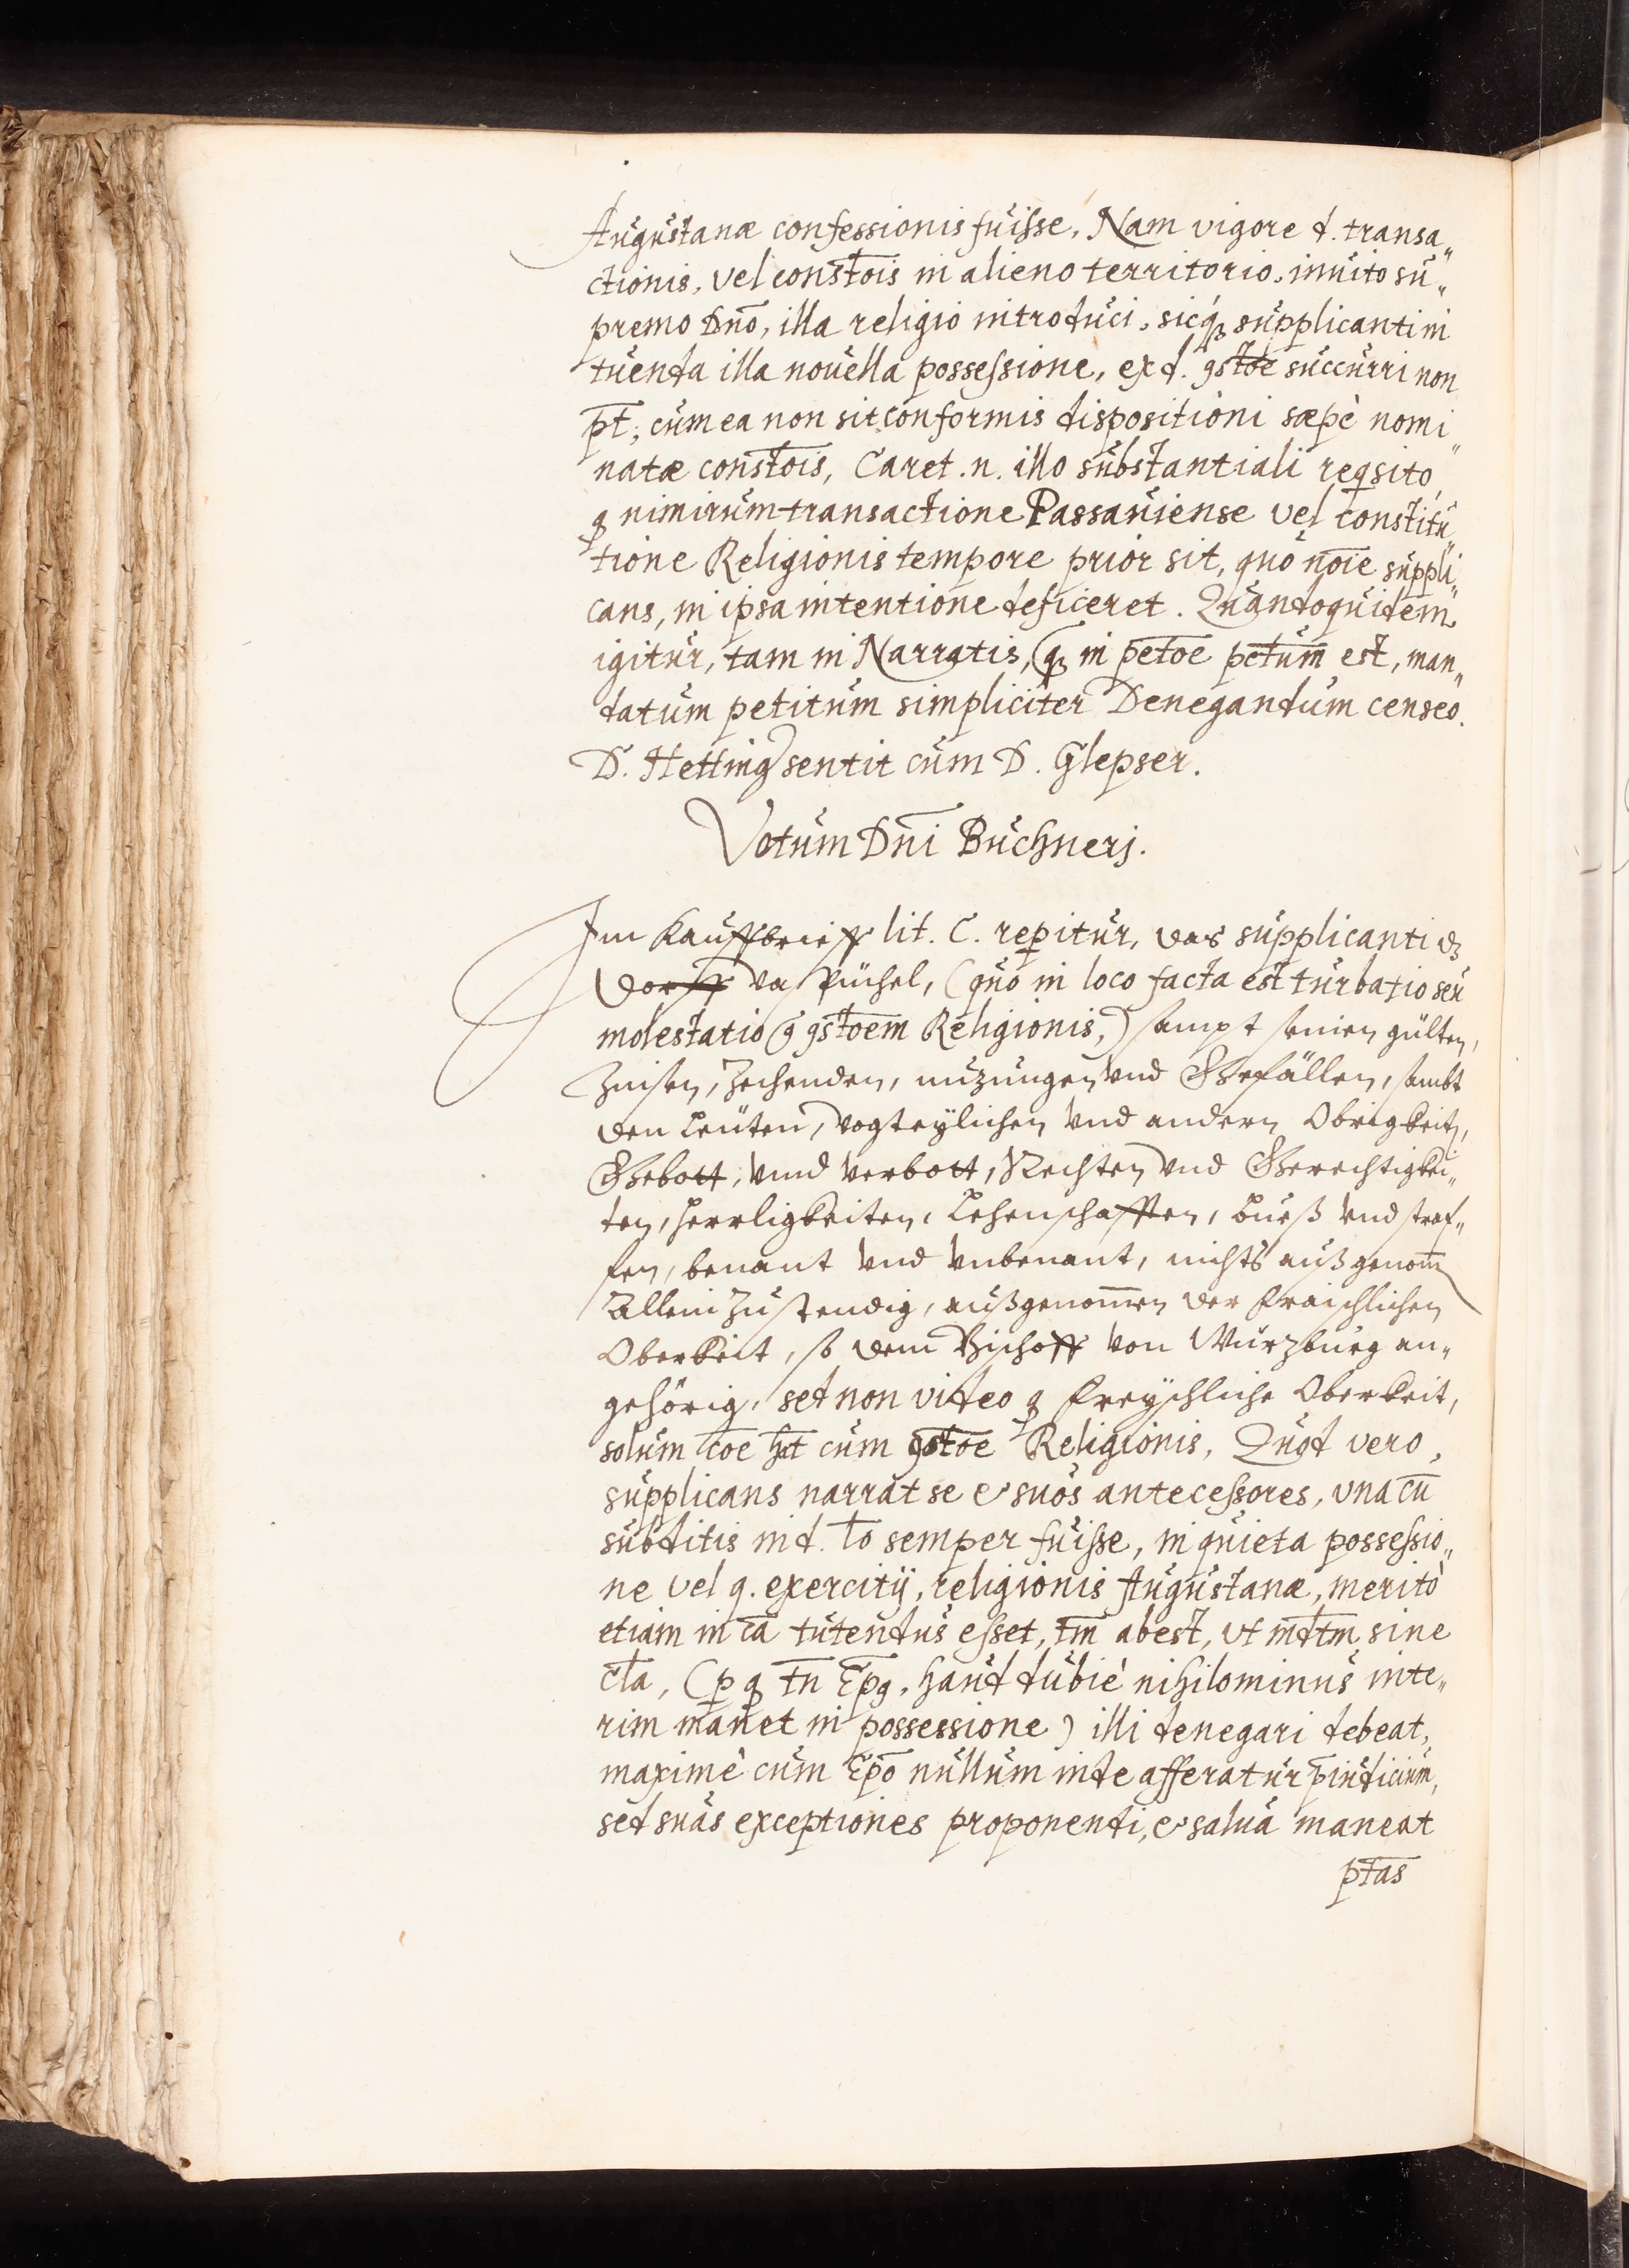 Augustanæ confessionis fuisse, Nam vigore d. transa„
ctionis, vel const̄ois in alieno territorio, inuito su„
premo Dn̄o, illa religio introduci, sicq́ꝫ supplicanti in
tuenda illa nouella possessione, ex d. ꝯstōe succurri non
pt̄; cum ea non sit conformis dispositioni sæpè nomi„
natæ const̄ois, Caret .n. illo substantiali reqsito,
ꝙ nimirum transactione Passauiense vel constitu„
tione Religionis tempore prior sit, quo nōie suppli„
cans, in ipsa intentione deficeret. Quandoquidem
igitur, tam in Narratis, ꝗꝫ in pet̄oe pet̄um est, man„
datum petitum simpliciter Denegandum censeo.
D. Hetting sentit cum D. Glepser.
Votum Dn̄i Buchnerj.
Im Kauffbrieff lit. C. reꝑitur, das supplicanti dz
Dorff da Püchel, (quo in loco facta est turbatio seu
molestatio ꝯ ꝯst̄oem Religionis,) sampt seinen gülten,
Zinsen, Zehenden, nuzungen vnd Gefällen, sambt
den Leüten, vogteylichen vnd andern Obrigkeitn,
Gebott, vnnd verbott, Rechten vnd Gerechtigkei„
ten, Herrligkeiten, Lehenschafften, bueß vnd straf„
fen, benant vnd vnbenant, nichts außgenom̄
Allein Zustendig, außgenom̄en der fraischlichen
Oberkeit, so dem Bischoff von Würzburg an„
gehörig, sed non video ꝙ freyschliche Oberkeit,
solum cōe ht̄ cum ꝯstōe Religionis, Quod vero,
supplicans narrat se & suos antecessores, vna cū
subditis in d. lo semper fuisse, in quieta possessio„
ne vel q. exercitij, religionis Augustanæ, meritò
etiam in ea tutendus esset, tm̄ abest, vt mdt̄m sine
cla, (ꝑ ꝙ tn̄ Ep̄g, haud dubiè nihilominus inte„
rim manet in possessione) illi denegari debeat,
maximè cum Ep̄o nullum inde afferatur p̄iudicium,
sed suas exceptiones proponendi, & salua maneat
pt̄as